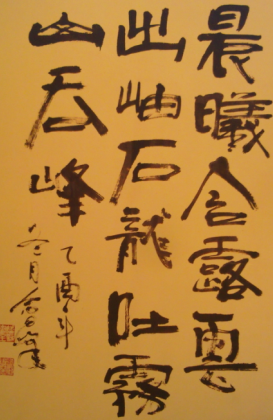 晨曦含露雲
出岫石龍吐霧
山吞峰
乙酉年
冬月